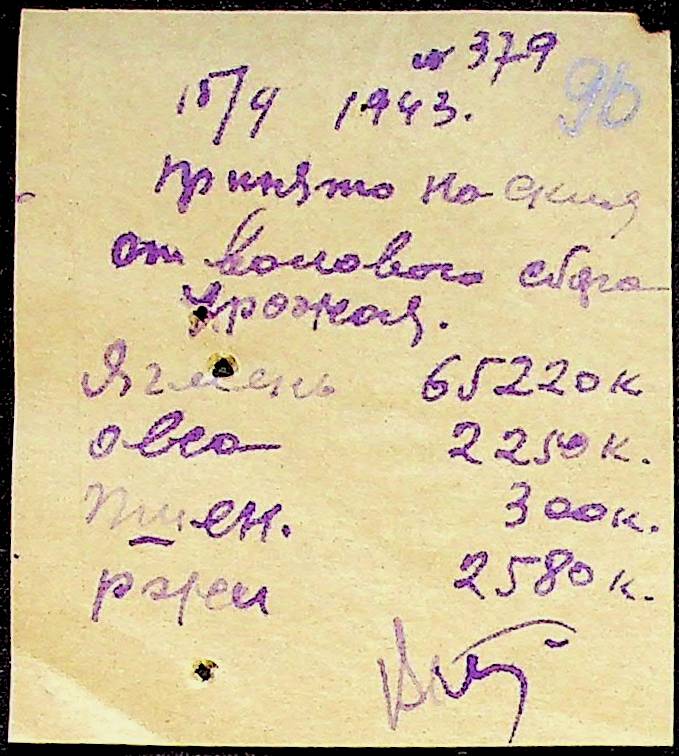 № 379
15/4 1943.
96
принято на склад
от валового сбора
урожая.
Ячмень 65220 к
овса 2250 к.
пшен. 300 к.
ржи 2580 к.